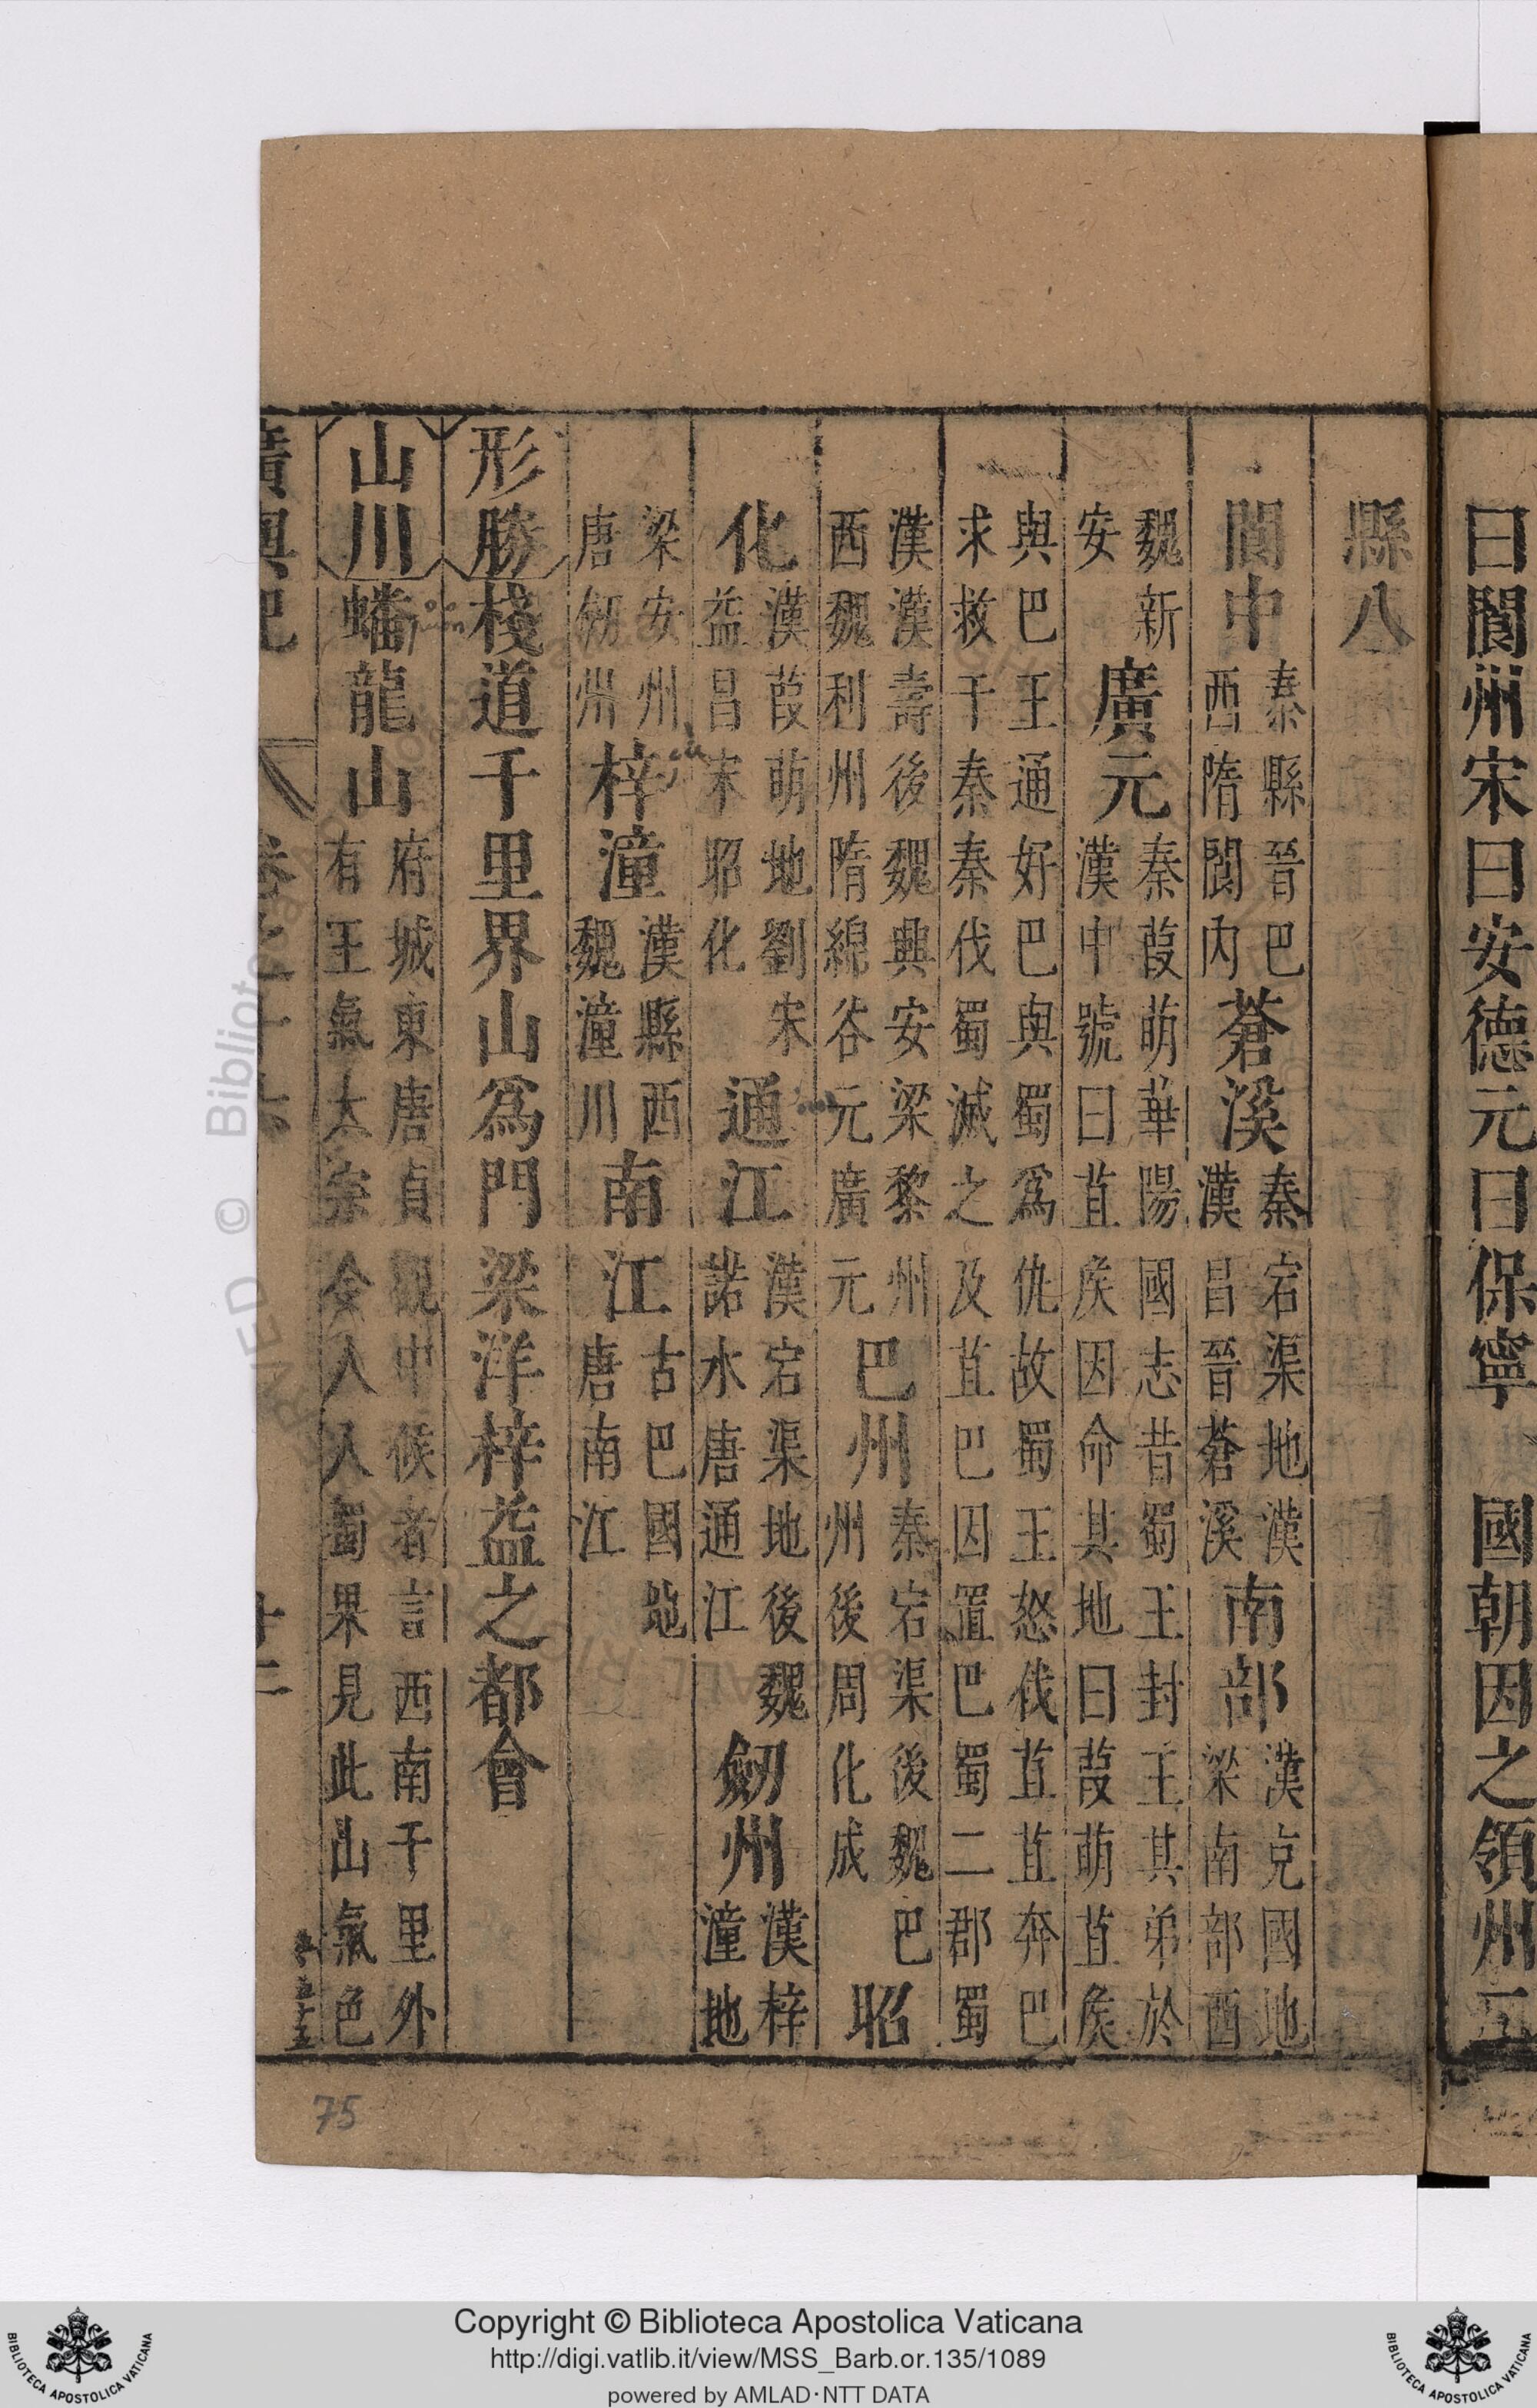 曰閬州宋曰安德元曰保寧 國朝因之領州二
縣八
閬中秦縣晉巴西隋閬內蒼溪秦宕渠地漢漢昌晉蒼溪南部漢充國地梁南部西
魏新安廣元秦葭萌華陽國志昔蜀王封王其弟於漢中號曰苴矦因命其地曰葭萌苴矦
與巴王通好巴與蜀為仇故蜀王怒伐苴苴奔巴求救于秦秦伐蜀滅之及苴巴因置巴蜀二郡蜀
漢漢壽後魏興安梁黎州西魏利州隋綿谷元廣元巴州秦宕渠後魏巴州後周化成昭
化漢葭萌地劉宋益昌宋昭化通江漢宕渠地後魏諾水唐通江劒州漢梓潼地
梁安州唐劒州梓潼漢縣西魏潼川南江古巴國地唐南江
形勝棧道千里界山為門梁洋梓益之都會
山川蟠龍山府城東唐貞觀中候者言西南千里外有王氣太宗令人入蜀果見此山氣色
廣輿記
75
Copyright © Biblioteca Apostolica Vaticana
http://digi.vatlib.it/view/MSS_Barb.or.135/1089
powered by AMLAD·NTT DATA
BIBLIOTECA APOSTOLICA VATICANA
BIBLIOTECA APOSTOLICA VATICANA